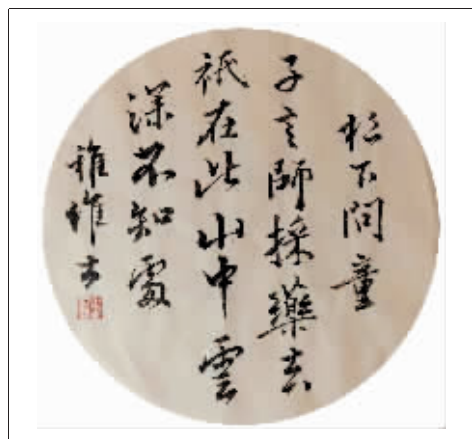 松下問童
子言師採藥去
祇在此山中雲
深不知處
雅維书